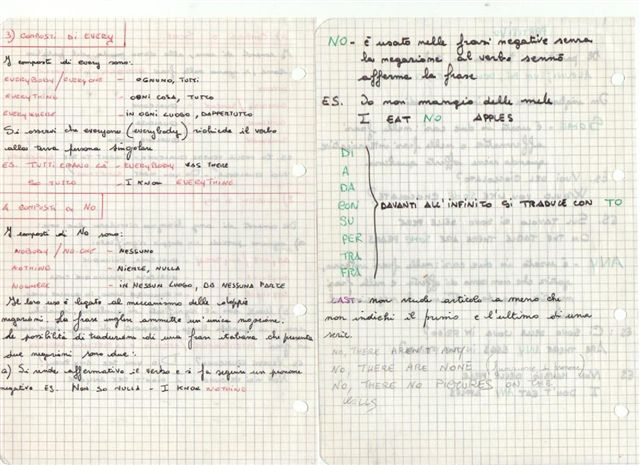 3) COMPOSTI DI EVERY
I composti di every sono:
EVERYBODY / EVERYONE - OGNUNO, TUTTI
EVERYTHING - OGNI COSA, TUTTO
EVERYWHERE - IN OGNI LUOGO, DAPPERTUTTO
Si osservi che everyone (everybody) richiede il verbo
alla terza persona singolare
ES. TUTTI ERANO LÀ - EVERYBODY WAS THERE
SO TUTTO - I KNOW EVERYTHING
COMPOSTI DI NO
I composti di No sono:
NOBODY / NO-ONE - NESSUNO
NOTHING - NIENTE, NULLA
NOWHERE - IN NESSUN LUOGO, DA NESSUNA PARTE
Il loro uso è legato al meccanismo delle doppie
negazioni. La frase inglese ammette un'unica negazione.
Le possibilità di traduzione di una frase italiana che presenta
due negazioni sono due:
a) Si rende affermativo il verbo e si fa seguire un pronome
negativo ES. NON SO NULLA - I KNOW NOTHING
NO - è usato nelle frasi negative senza
la negazione al verbo sennò
afferma la frase
ES. Io non mangio delle mele
I EAT NO APPLES
DI
A
DA
CON
SU
PER
TRA
FRA
DAVANTI ALL'INFINITO SI TRADUCE CON TO
LAST - non vuole articolo a meno che
non indichi il primo e l'ultimo di una
serie.
NO, THERE AREN'T ANY
NO, THERE ARE NONE
NO, THERE NO PICTURES ON THE
WALLS